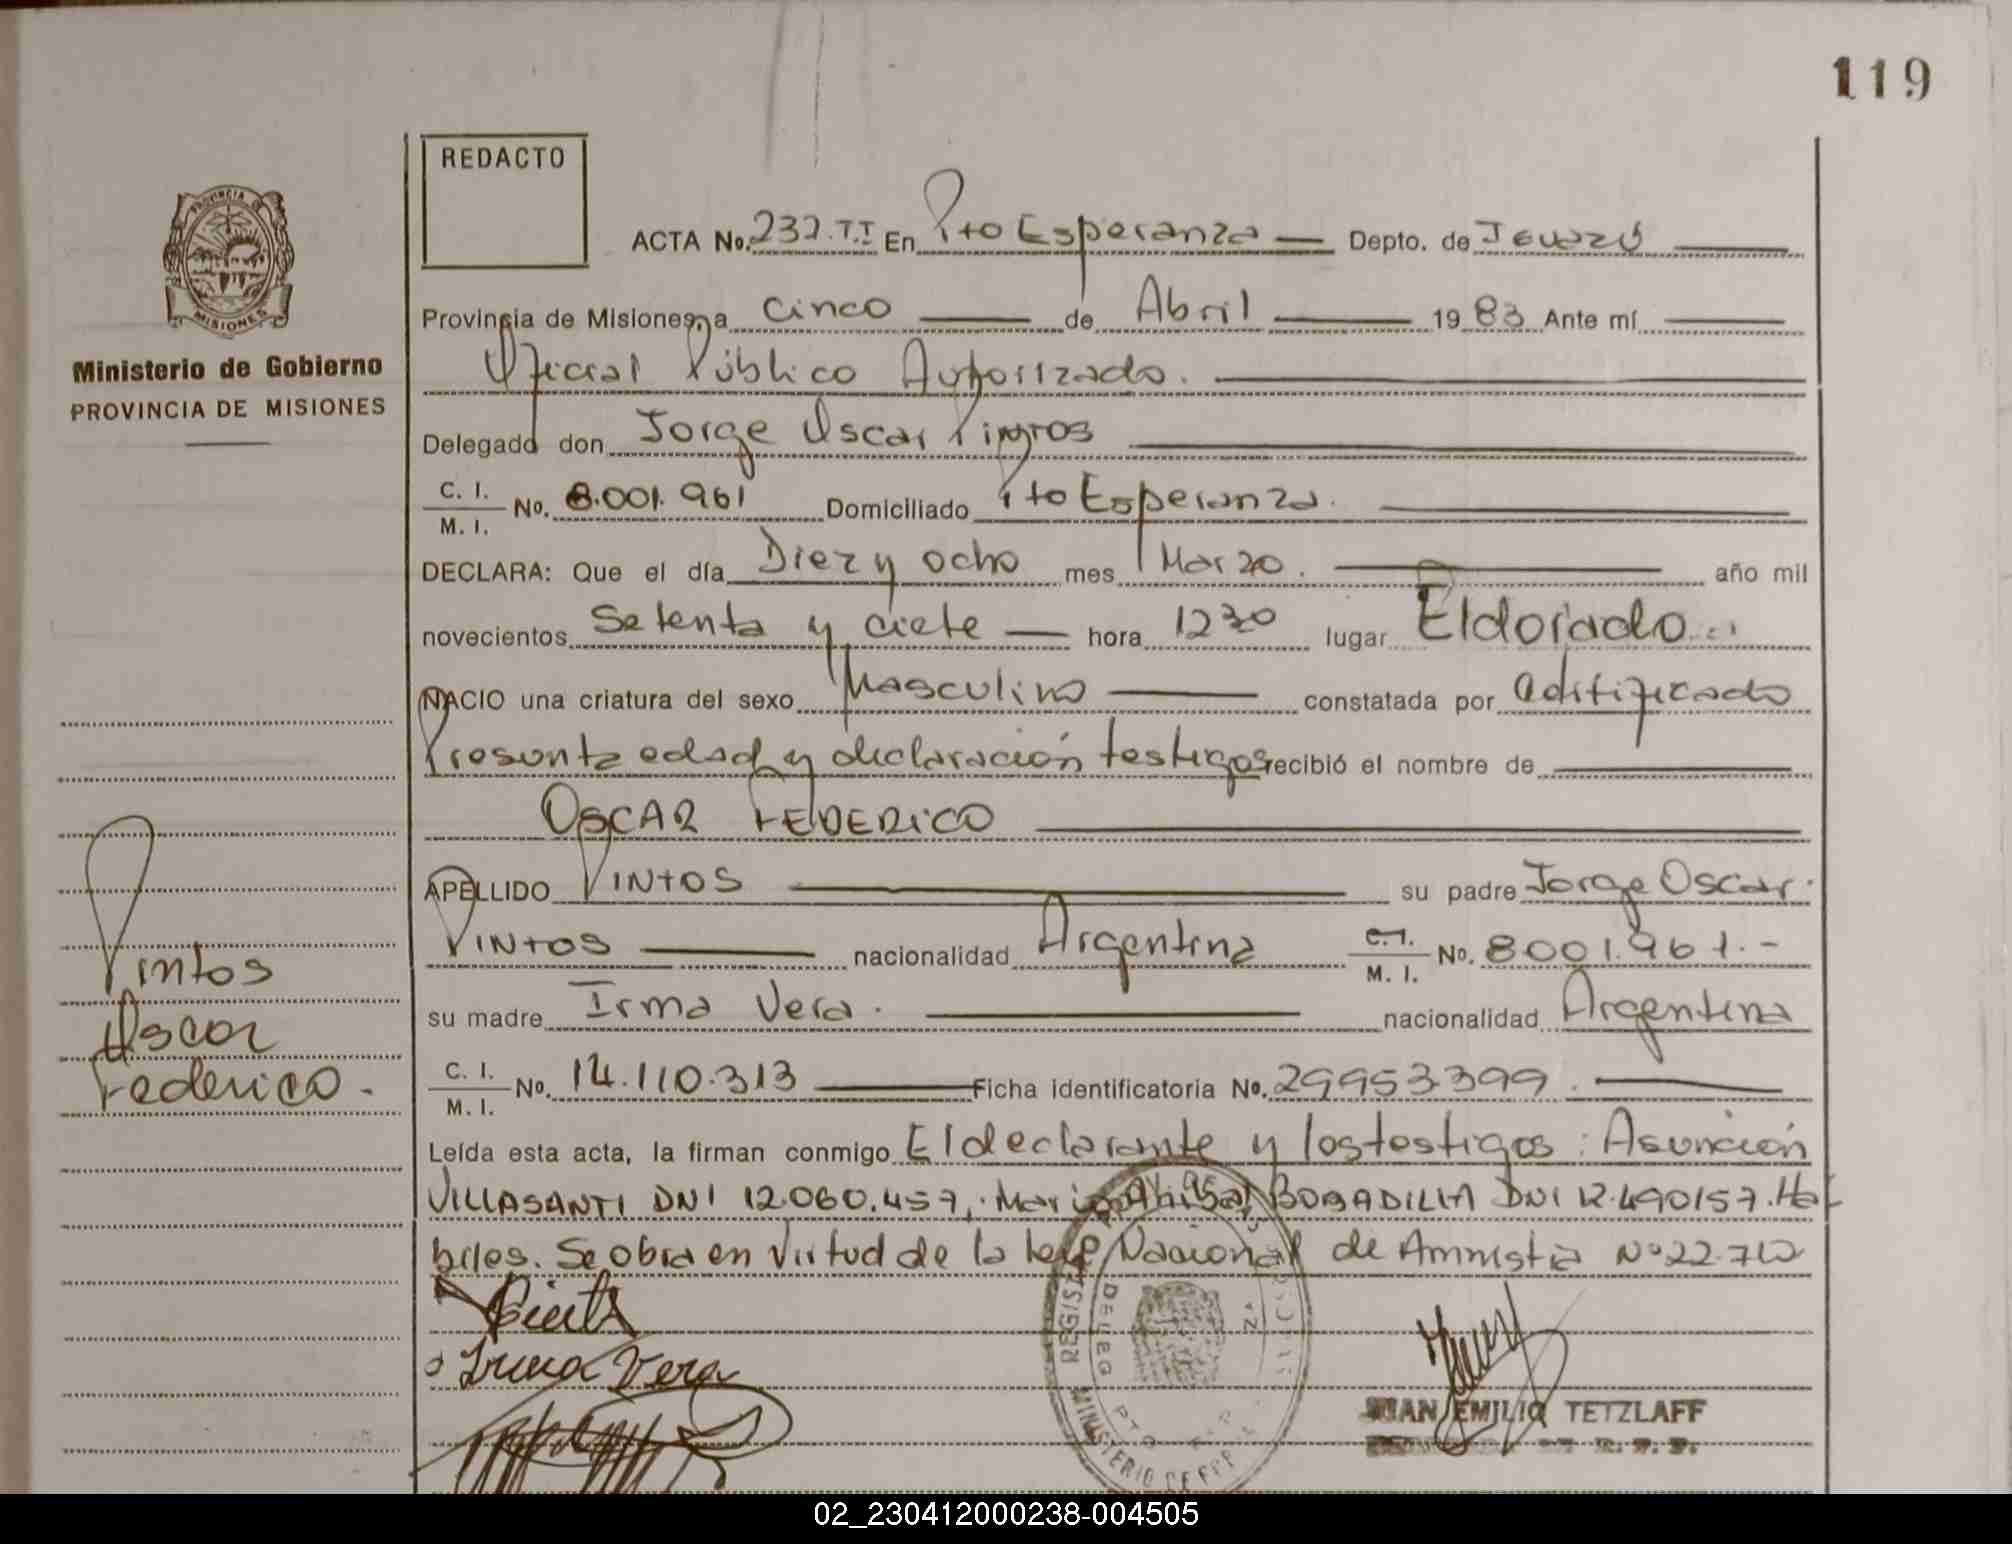 119
REDACTO
PROVINCIA DE
MISIONES
Ministerio de Gobierno
PROVINCIA DE MISIONES
ACTA No. 232.T.I En Pto Esperanza Depto. de Iguazú
Provincia de Misiones, a cinco de Abril 1983 Ante mí
Oficial Público Autorizado.
Delegado don Jorge Oscar Pintos
C. I. M. I. No. 8.001.961 Domiciliado Pto Esperanza.
DECLARA: Que el día Diez y ocho mes Marzo. año mil
novecientos Setenta y ciete hora 1230 lugar Eldorado
NACIO una criatura del sexo Masculino constatada por
Presente edad y declaración testigos recibió el nombre de
OSCAR FEDERICO
APELLIDO PINTOS su padre Jorge Oscar
PINTOS nacionalidad Argentina C.I. M. I. No. 8001.961.-
su madre Irma Vera. nacionalidad Argentina
C. I. M. I. No. 14.110.313 Ficha identificatoria No. 29953399.
Leída esta acta, la firman conmigo El declarante y los testigos: Asunción
VILLASANTI DNI 12.060.457, Mario BOBADILLA DNI 12.490157. Ha
biles. Se obra en Virtud de la Nacional de Amnistia Nº 22.710
Pintos
Oscar
Federico.-
Irma Vera
REGIST
DELEG
PTO
MINISTERIO DE
JUAN EMILIO TETZLAFF
02_230412000238-004505